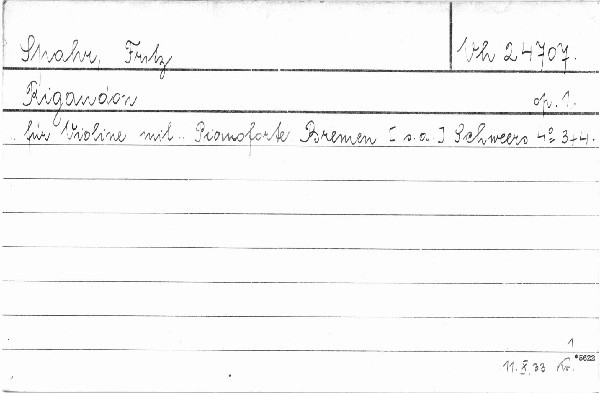 Snahr, Fritz
Vh 24707.
Rigaudon op. 1.
.. für Violine mit .. Pianoforte Bremen [ s. a ] Schweers 4º 3+4.
1
11. X. 33 *5622